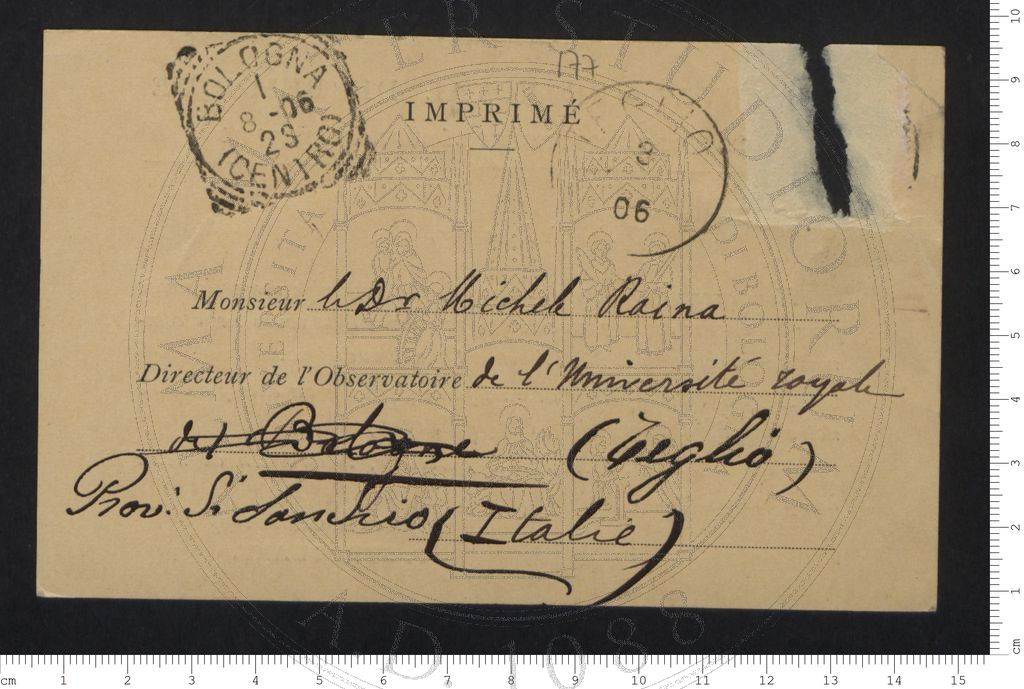 177
BOLOGNA
1
8 -06
2S
(CENTRO)
IMPRIMÉ
TEGLIO
06
Monsieur le Dr Michele Raina
Directeur de l'Observatoire de l'Université royale
de Bologne (Teglio)
Prov. di Sondrio (Italie)
ALMA MATER STUDIORUM
A.D. 1088
cm 1 2 3 4 5 6 7 8 9 10 11 12 13 14 15
cm 1 2 3 4 5 6 7 8 9 10